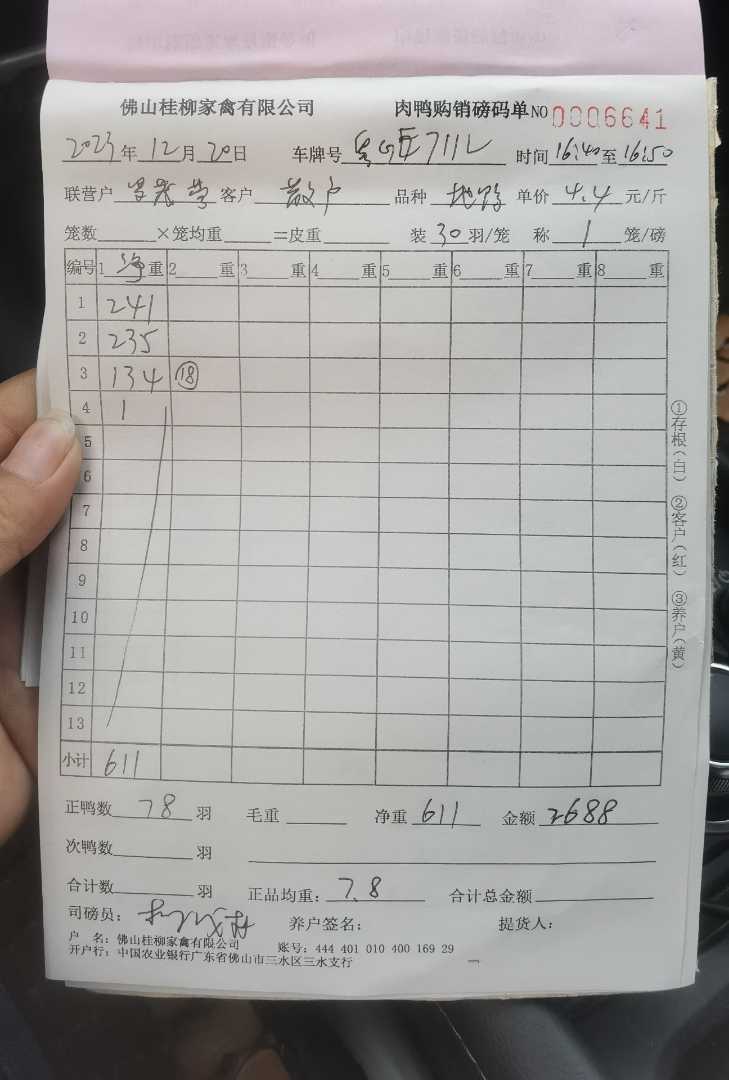 佛山桂柳家禽有限公司 肉鸭购销磅码单 NO 0006641
2023年12月20日 车牌号 711L 时间16:40至16:50
联营户 客户 散户 品种 单价 4.4 元/斤
笼数 ×笼均重 =皮重 装 30 羽/笼 称 1 笼/磅
编号 1 净 重 2 重 3 重 4 重 5 重 6 重 7 重 8 重
1 241
2 235
3 134 ⑱
4 1
5
6
7
8
9
10
11
12
13
小计 611
正鸭数 78 羽 毛重 净重 611 金额 2688
次鸭数 羽
合计数 羽 正品均重: 7.8 合计总金额
司磅员: 养户签名: 提货人:
户 名: 佛山桂柳家禽有限公司 账号: 444 401 010 400 169 29
开户行: 中国农业银行广东省佛山市三水区三水支行
①存根(白) ②客户(红) ③养户(黄)